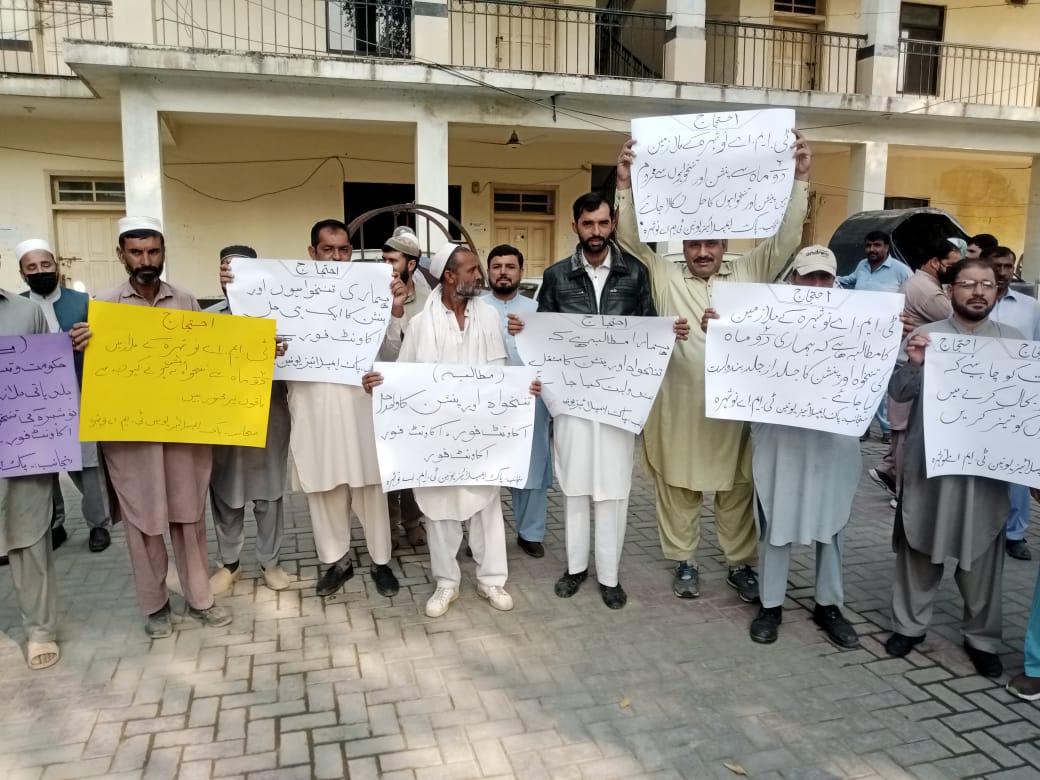 حکومت و
بلدیاتی
اکاونٹ فور
منجانب۔ پاک
احتجاج
ٹی ایم اے نوشہرہ کے ملازمین
دو ماہ سے تنخواہ نہ
فاقوں پر مجبور ہیں
منجانب۔ پاک ایمپلائیز یونین ٹی ایم اے نوشہرہ
احتجاج
ہماری تنخواہوں اور
پنشن کا ایک ہی حل
اکاونٹ فور ہے
منجانب پاک ایمپلائیز یونین
(مطالبہ)
تنخواہ اور پنشن کا واحد حل
اکاونٹ فور۔ اکاونٹ فور
اکاونٹ فور
منجانب پاک ایمپلائیز یونین ٹی ایم اے نوشہرہ
احتجاج
ہمارا مطالبہ ہے کہ
تنخواہ اور پنشن کا مستقل
کیا جائے
منجانب پاک ایمپلائیز یونین
احتجاج
ٹی۔ایم۔اے نوشہرہ کے ملازمین
دو ماہ سے پنشن اور تنخواہوں سے محروم
ہیں پنشن اور تنخواہوں کا حل نکالا جائے
منجانب۔ پاک ایمپلائیز یونین ٹی ایم اے نوشہرہ
احتجاج
ٹی۔ایم۔اے نوشہرہ کے ملازمین
کا مطالبہ ہے کہ ہماری دو ماہ
کی تنخواہ اور پنشن کا جلد از جلد بندوبست
کیا جائے
منجانب پاک ایمپلائیز یونین ٹی ایم اے نوشہرہ
احتجاج
کو چاہئے کہ
بحال کرنے میں
کو تیز کریں
پاک ایمپلائیز یونین ٹی ایم اے نوشہرہ